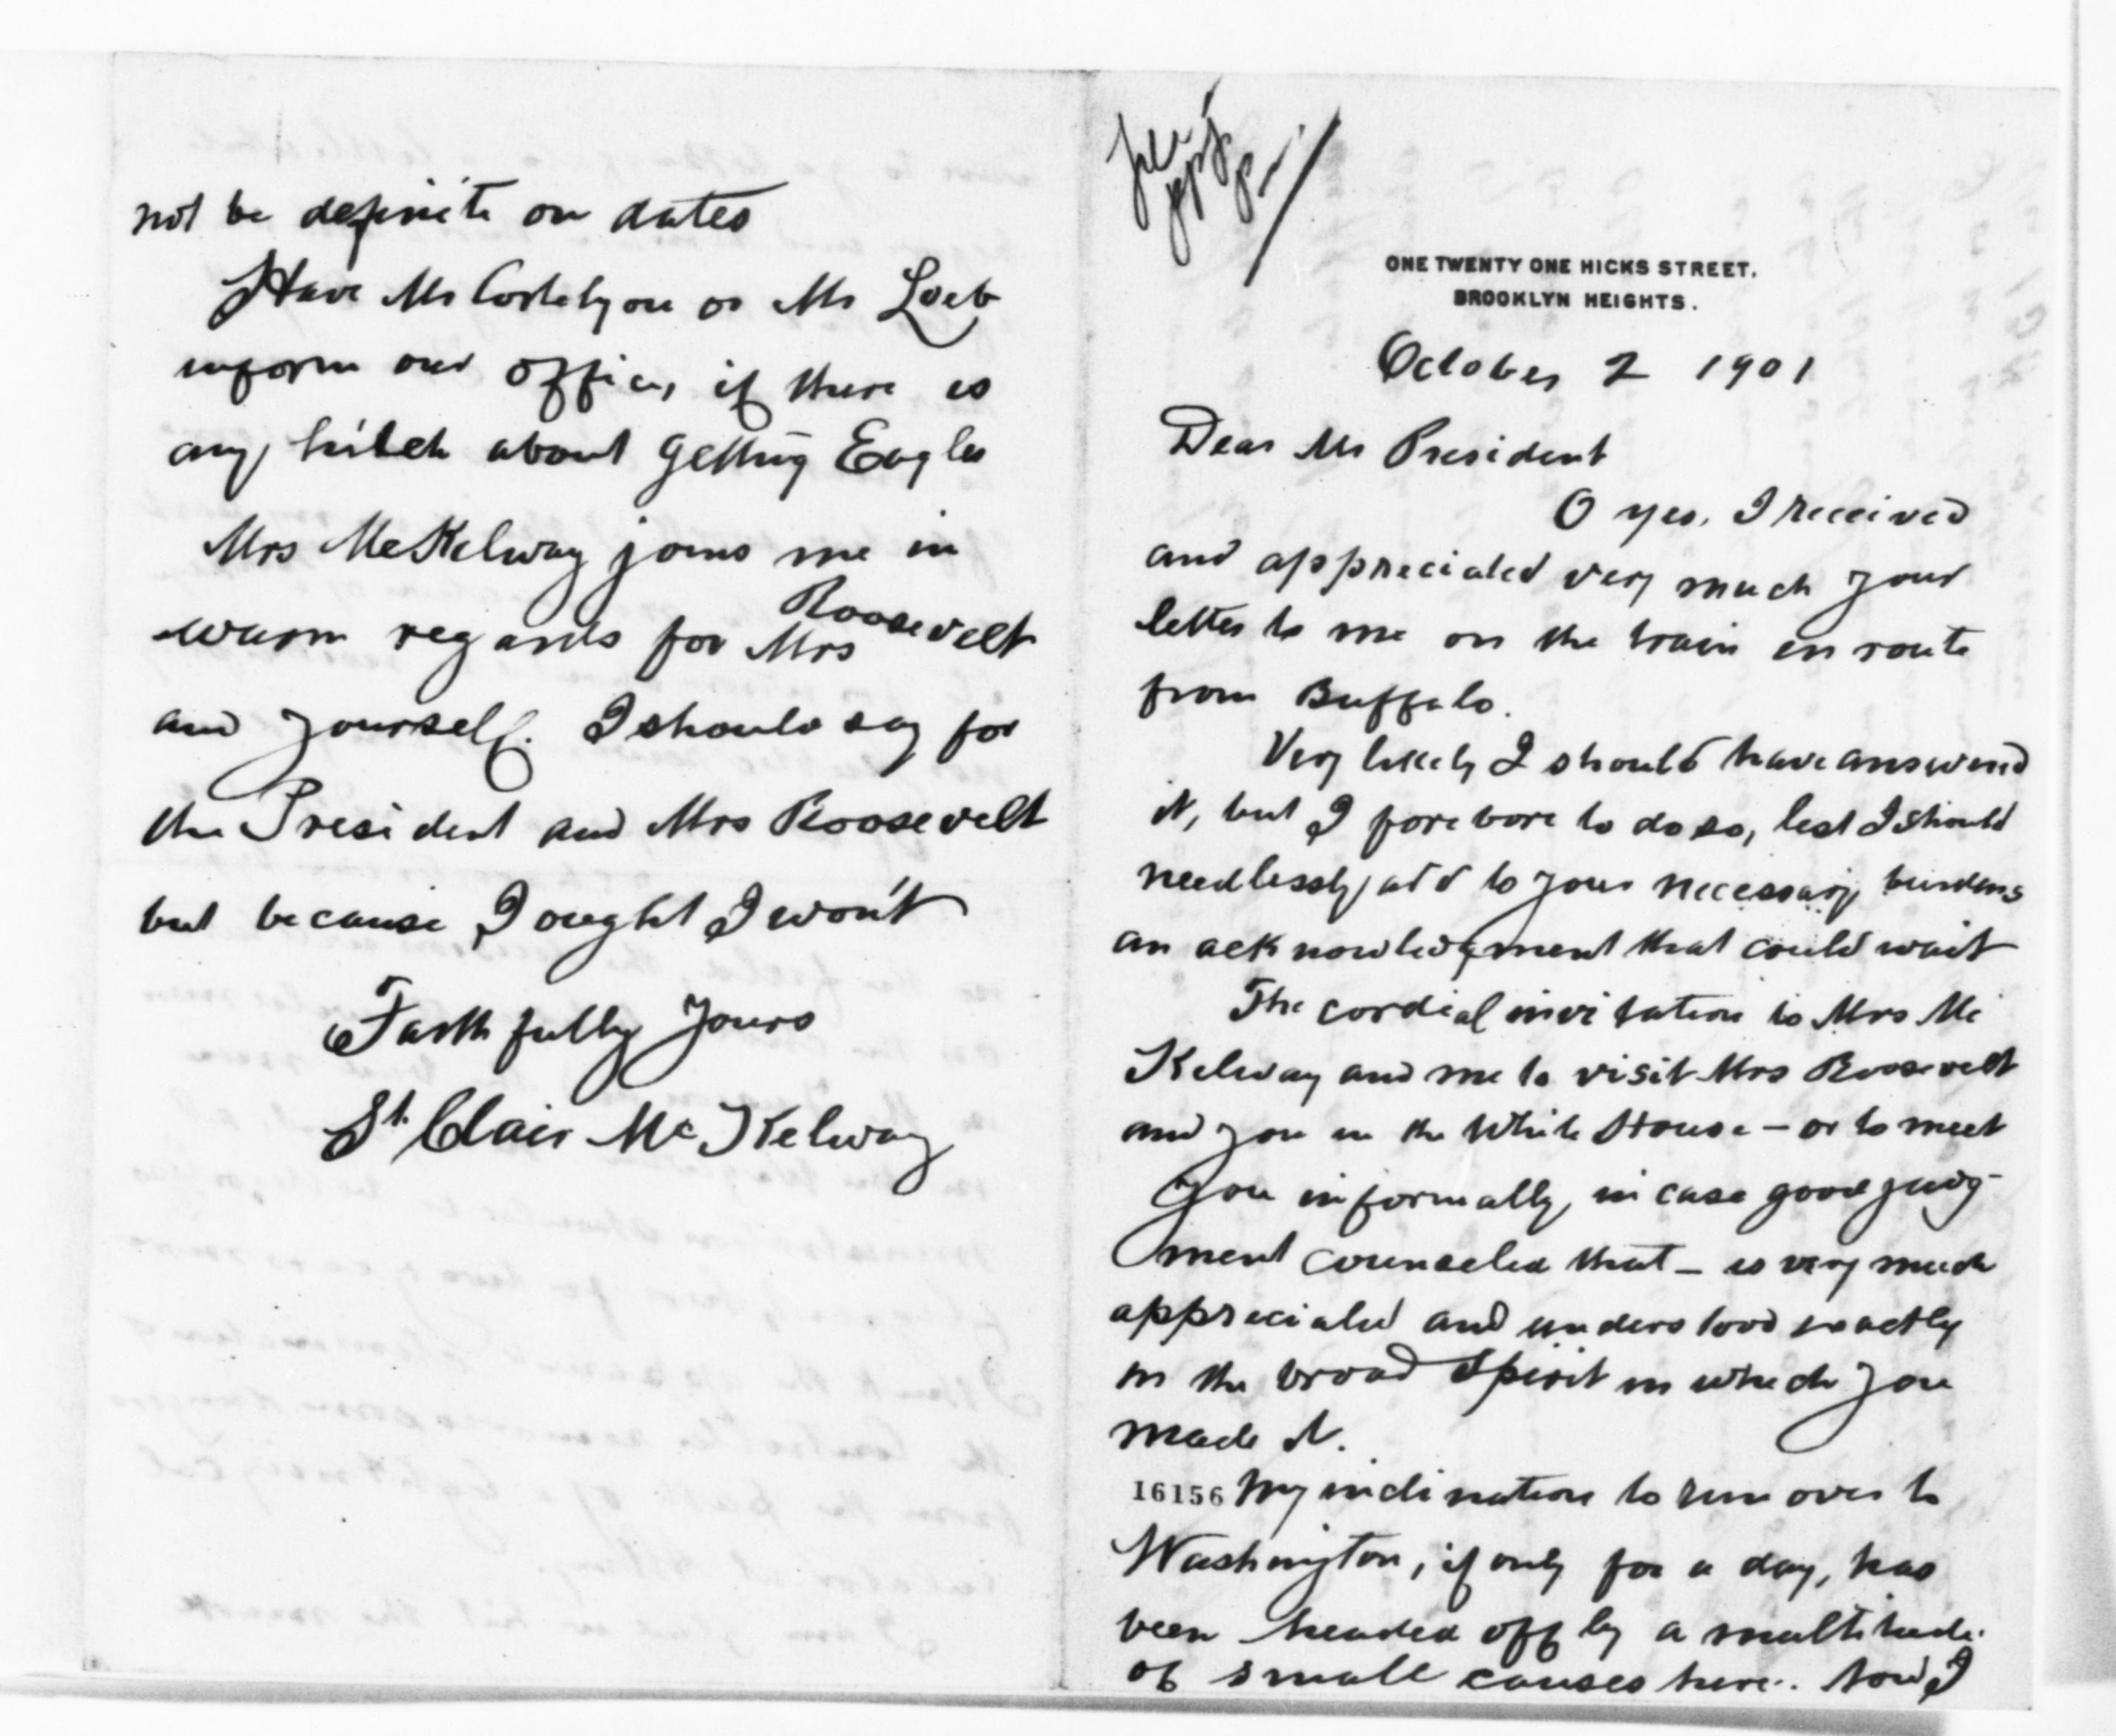 not be definite on dates
Have Mr Cortelyou or Mr Loeb
inform our office, if there is
any hitch about getting Eagles
Mrs McKelway joins me in
warm regards for Mrs Roosevelt
and yourself. I should say for
the President and Mrs Roosevelt
but because I ought I won't
Faithfully Yours
St. Clair McKelway
ONE TWENTY ONE HICKS STREET.
BROOKLYN HEIGHTS.
October 2 1901
Dear Mr President
O yes, I received
and appreciated very much your
letter to me on the train en route
from Buffalo.
Very likely I should have answered
it, but I forebore to do so, lest I should
needlessly add to your necessary burdens
an acknowledgment that could wait
The cordial invitation to Mrs Mc
Kelway and me to visit Mrs Roosevelt
and you in the White House – or to meet
you informally, in case good judg-
ment counseled that – is very much
appreciated and understood exactly
in the broad spirit in which you
made it.
16156 My inclination to run over to
Washington, if only for a day, has
been headed off by a multitude
of small causes here. Now I